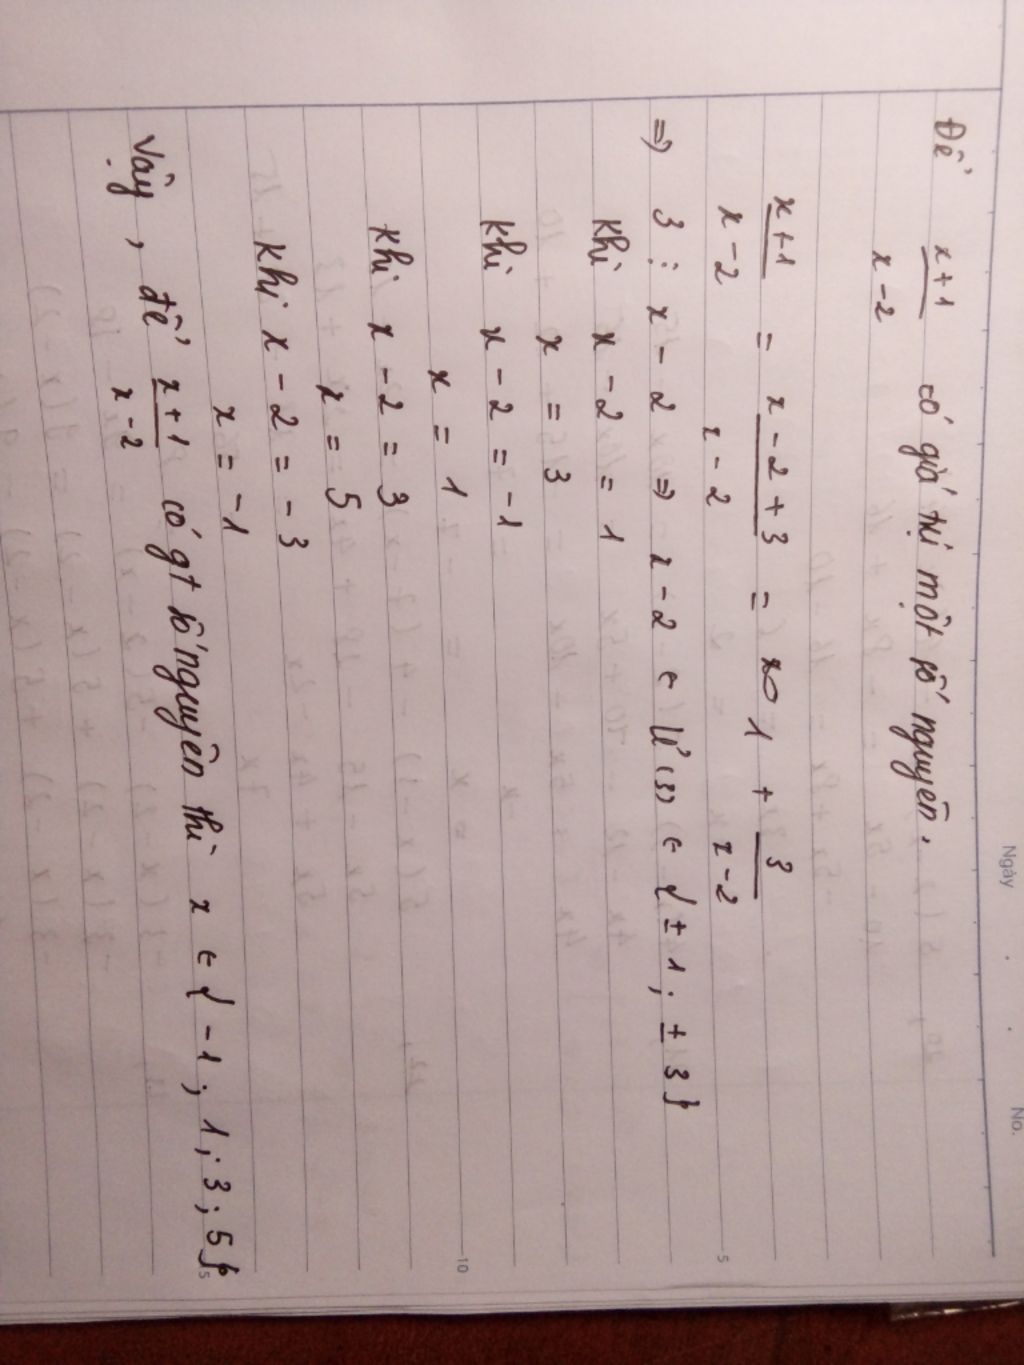 Ngày No.
Để x+1/x-2 có giá trị một số nguyên.
x+1/x-2 = x-2+3/x-2 = 1 + 3/x-2
=> 3 ⋮ x-2 => x-2 ∈ Ư(3) ∈ {±1; ±3}
Khi x-2 = 1
x = 3
Khi x-2 = -1
x = 1
Khi x-2 = 3
x = 5
Khi x-2 = -3
x = -1
Vậy, để x+1/x-2 có gt số nguyên thì x ∈ {-1; 1; 3; 5}
5
10